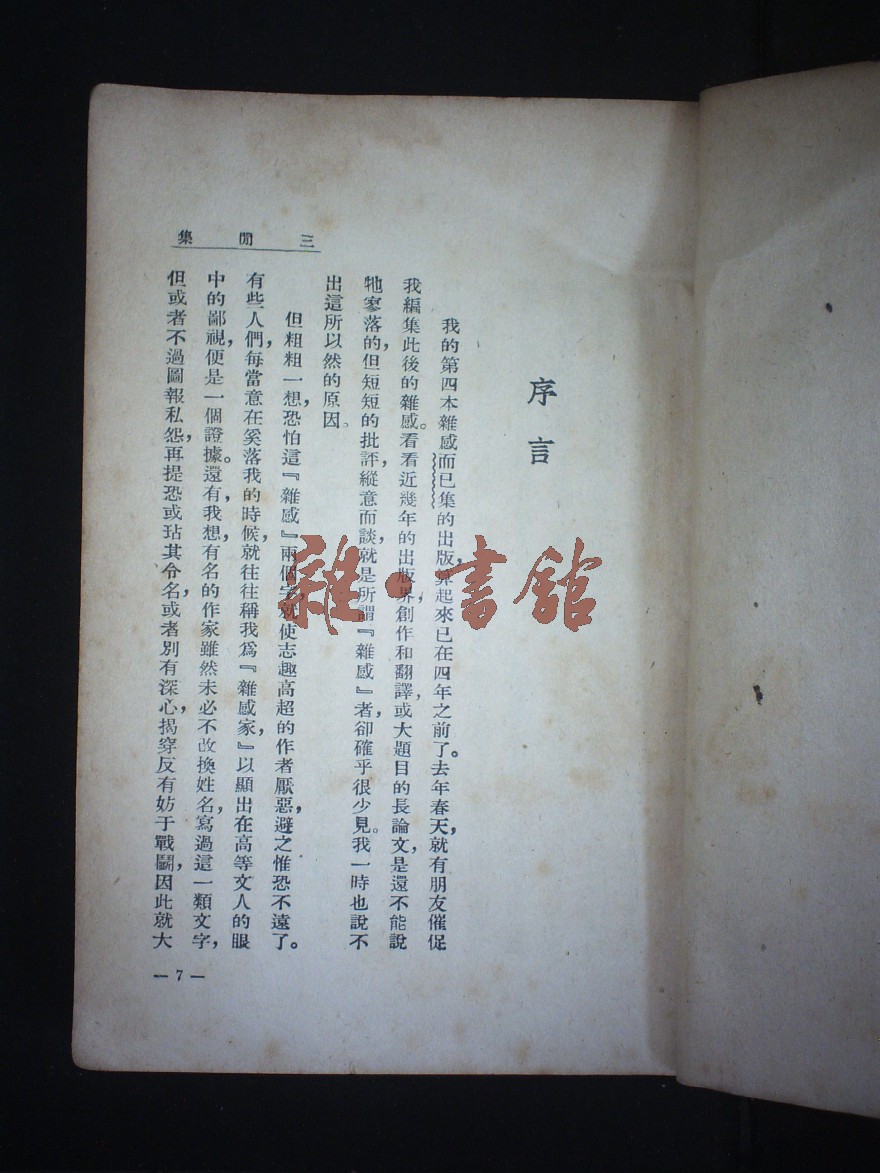 三閒集
序言
我的第四本雜感而已集的出版，算起來已在四年之前了。去年春天，就有朋友催促
我編集此後的雜感。看看近幾年的出版界，創作和翻譯，或大題目的長論文，是還不能說
牠寥落的，但短短的批評，縱意而談，就是所謂『雜感』者，卻確乎很少見。我一時也說不
出這所以然的原因。
但粗粗一想，恐怕這『雜感』兩個字，就使志趣高超的作者厭惡，避之惟恐不遠了。
有些人們，每當意在奚落我的時候，就往往稱我爲『雜感家，』以顯出在高等文人的眼
中的鄙視，便是一個證據。還有，我想，有名的作家雖然未必不改換姓名，寫過這一類文字，
但或者不過圖報私怨，再提恐或玷其令名，或者別有深心，揭穿反有妨于戰鬭，因此就大
— 7 —
雜·書館